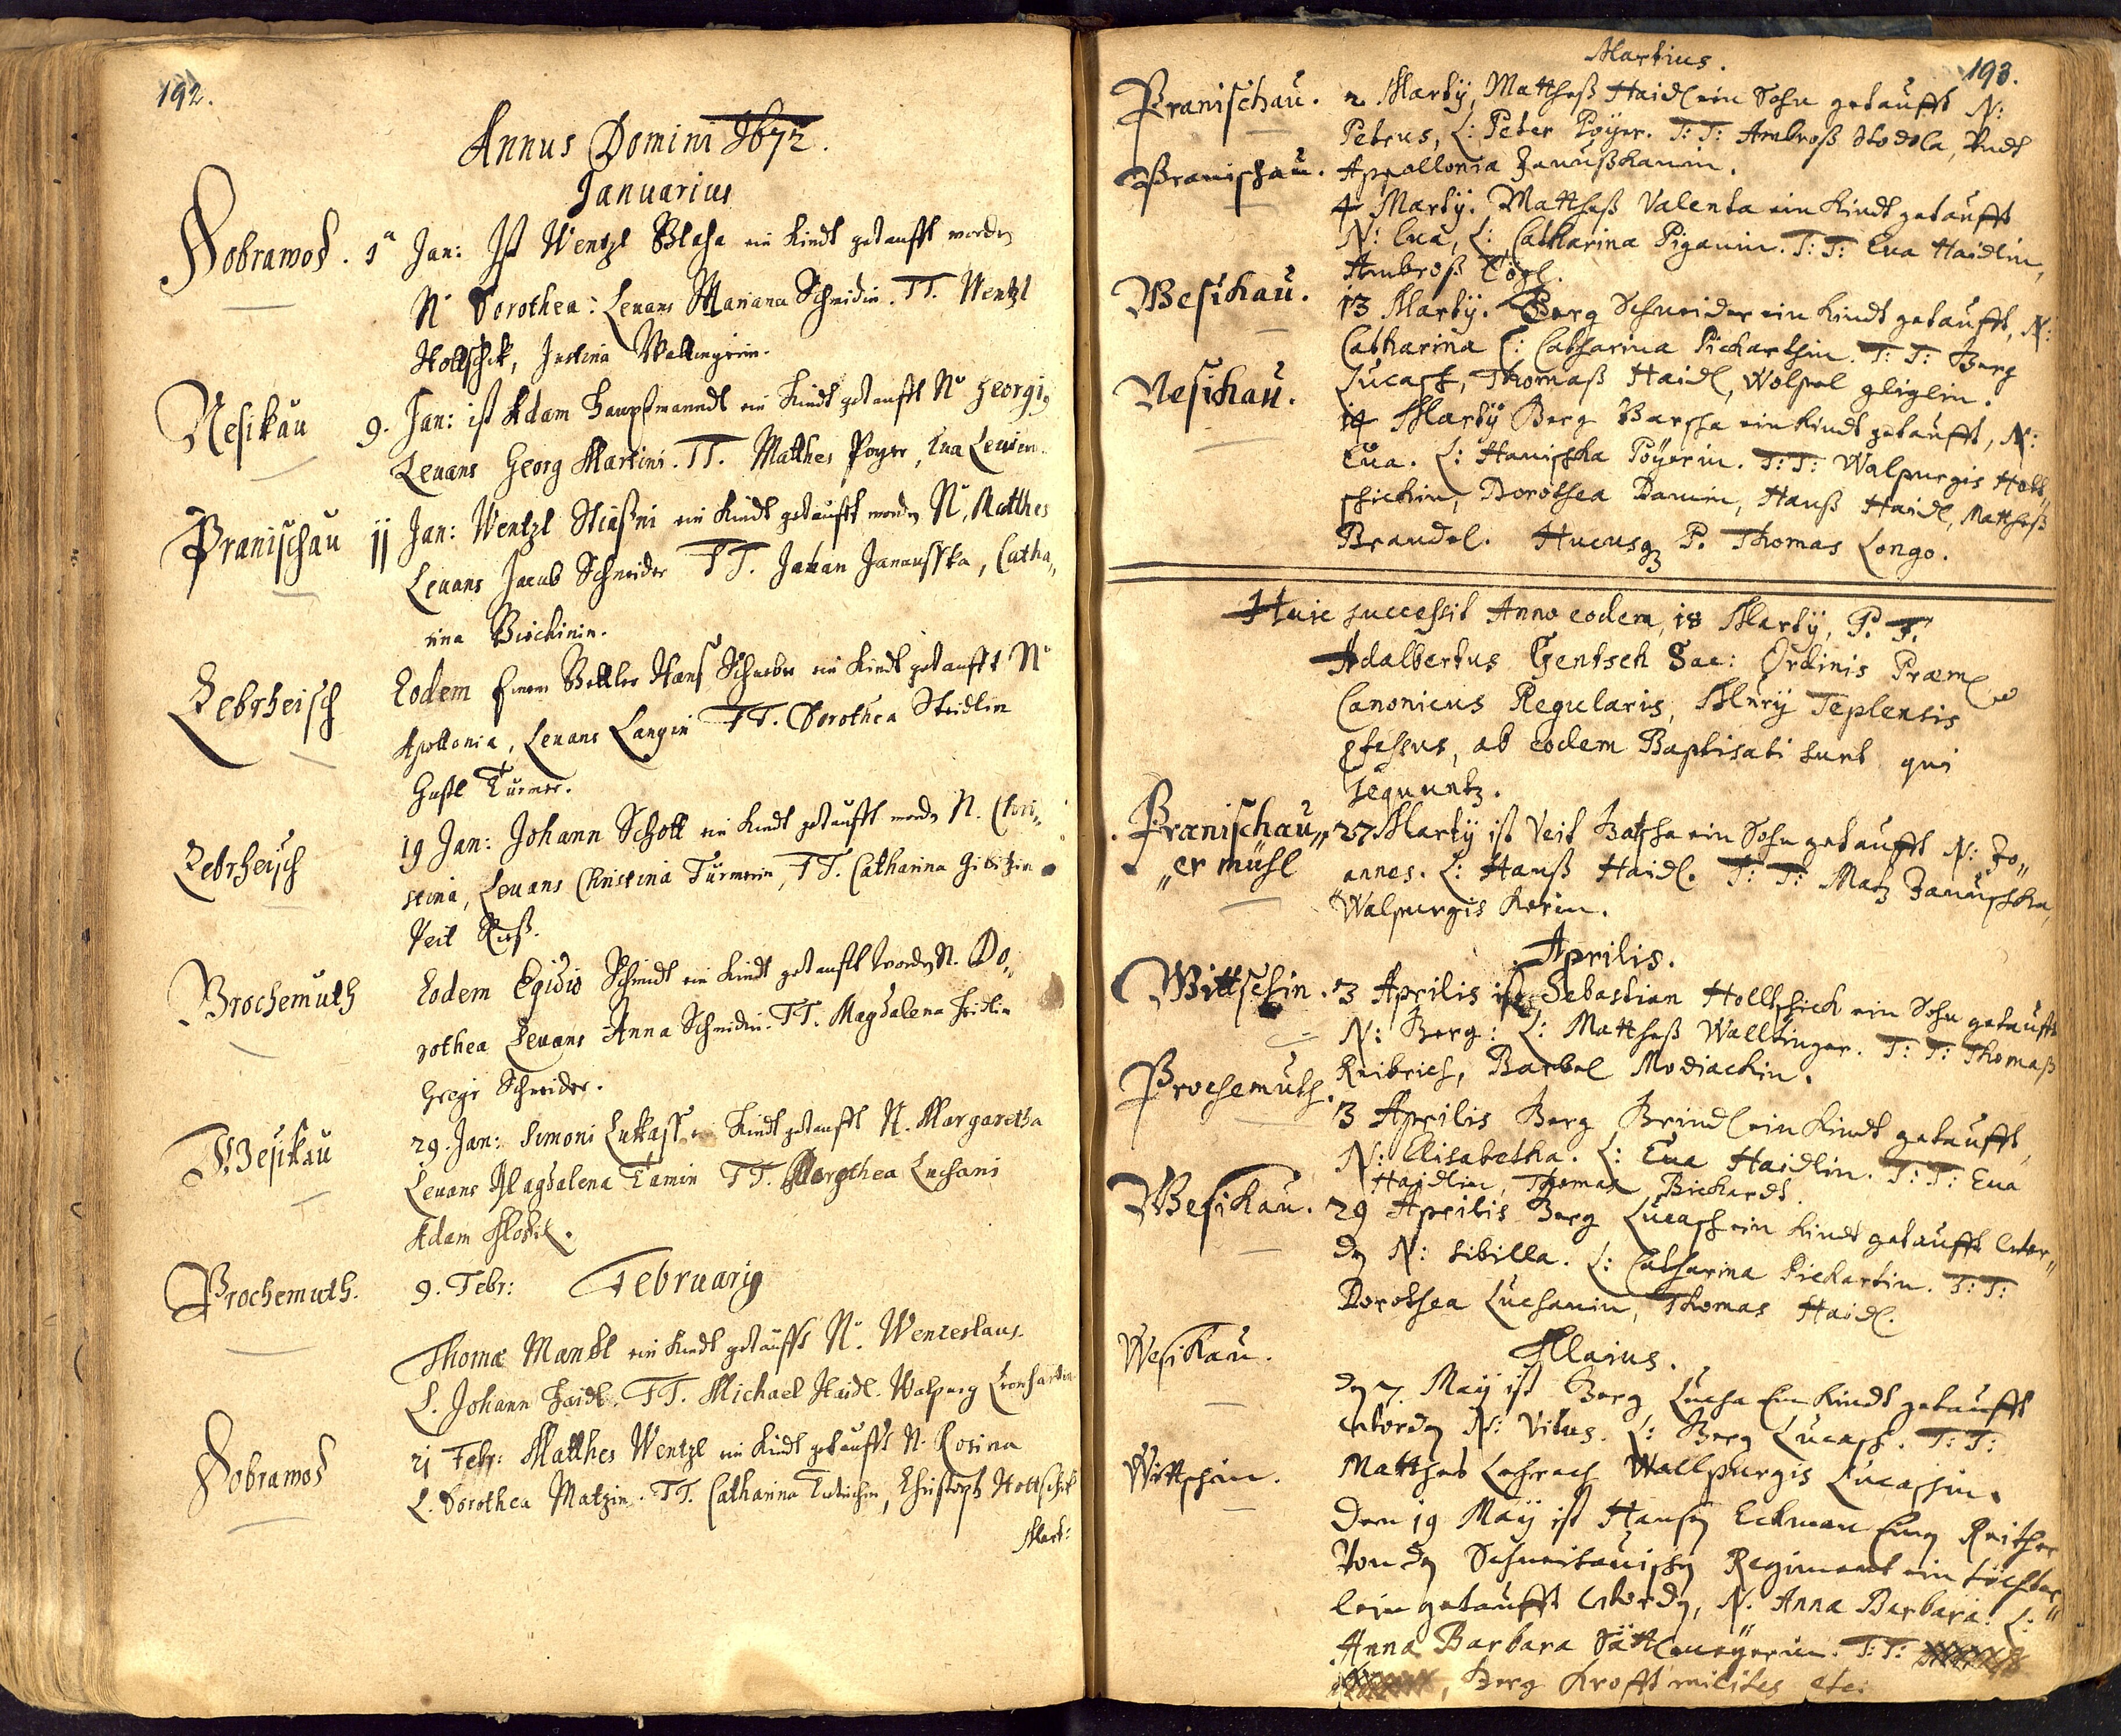 192.
Annus Domini 1672.
Januarius
Dobrawod. 1ª Jan: Ist Wentzl Blaha ein Kindt getaufft worden
N. Dorothea: Levans Mariana Schneidin. TT. Wentzl
Hollschek, Justina
Nesikau 9. Jan: ist Adam Hauptmanndt ein Kindt getaufft N. Georgig
Levans Georg Martini. TT. Matthes Poyer, Eva
Pranischau 11 Jan: Wentzl Stiaßni ein Kindt getaufft worden N. Matthes
Levans Jacub Schneider TT. Johan Janausska, Catha„
rina
Lebrheisch Eodem Hans ein Kindt getaufft N.
Apollonia, Levans Langin TT. Dorothea Steidlin
Türmer.
Lebrheisch 19 Jan: Johann Schott ein Kindt getaufft worden N. Chri„
stina, Levans Christina Türmerin, TT. Catharina
Veit
Brochemuth Eodem Egidio Schmidt ein Kindt getaufft worden N. Do„
rothea Levans Anna Schneidin. TT. Magdalena
Gregr Schneider.
Wesikau 29. Jan: Simoni Lukass ein Kindt getaufft N. Margaretha
Levans Magdalena Tamin TT. Dorothea Luchani
Adam
Prochemuth. 9. Febr: Februarig
Thomæ Mandl ein Kindt getaufft N. Wenceslaus.
L. Johann Haidl. TT. Michael Haidl. Walpurg
Dobrawod 21 Febr: Matthes Wentzl ein Kindt getaufft N. Rosina
L. Dorothea Matzin. TT. Catharina Christoph Hollschek
Mart:
Martius. 193.
Pranischau. 2 Martij, Mattheß Haidl ein Sohn getaufft N:
Petrus, L: Peter Pöyer. T: T: Ambroß Stodola, Undt
Pranischau. Appollonia Janußkanin.
4 Martij. Mattheß Valenta ein Kindt getaufft
N: Eva, L: Catharina Piganin. T: T: Eva Haidlin,
Ambroß
Wesikau. 13 Martij. Berg Schneider ein Kindt getaufft, N:
Catharina L: Catharina Pickarthin. T: T: Berg
Lucasch, Thomaß Haidl, Wolpel gliglin.
Nesichau. 14 Martij Berg Barcha ein Kindt getaufft, N:
Eva. L: Hanischka Pöyerin. T: T: Walpurgis Holl„
schickin, Dorothea Damin, Hanß Haidl, Mattheß
Brandel. Hucusq P. Thomas Longo.
Huic successit Anno eodem, 18 Martij, P. F.
Adalbertus Gentsch Sac: Ordinis Præm
Canonicus Regularis, Mnrij Teplensis
pfessus, ab eodem Baptisati sunt qui
sequuntz.
Pranischau„ 27. Martij ist Veit Batscha ein Sohn getaufft N: Jo„
„er mühl annes. L: Hanß Haidl. T: T: Matz Janauschka,
Walpurgis Kerin.
Aprilis.
Wittschin. 3 Aprilis ist Sebastian Hollschick ein Sohn getaufft
N: Berg: L: Mattheß Walltinger. T: T: Thomaß
Reibrich, Barbel Modiackin.
Prochemuth. 3 Aprilis Berg Brindl ein Kindt getaufft,
N: Elisabetha. L: Eva Haidlin. T: T: Eva
Haidlin, Thomas Bickardt.
Wesikau. 29 Aprilis Berg Lucasch ein Kindt getaufft wor„
dn N: Sibilla. L: Catharina Pickartin. T: T:
Dorothea Luchanin, Thomas Haidl.
Maius.
Wesikau. dn 7 Maij ist Berg Lucha Ein Kindt getaufft
wordn N: Vitus. L: Berg Lucasch. T: T:
Matthes Wallpurgis Lucaschin.
Wittschin. Den 19 Maij ist Hansn Eckman Einn Reither
Von dn Regiment ein töchter„
lein getaufft wordn, N. Anna Barbara. L:
Anna Barbara Sättlmeÿerin. T: T:
Berg Krofft milites etc: